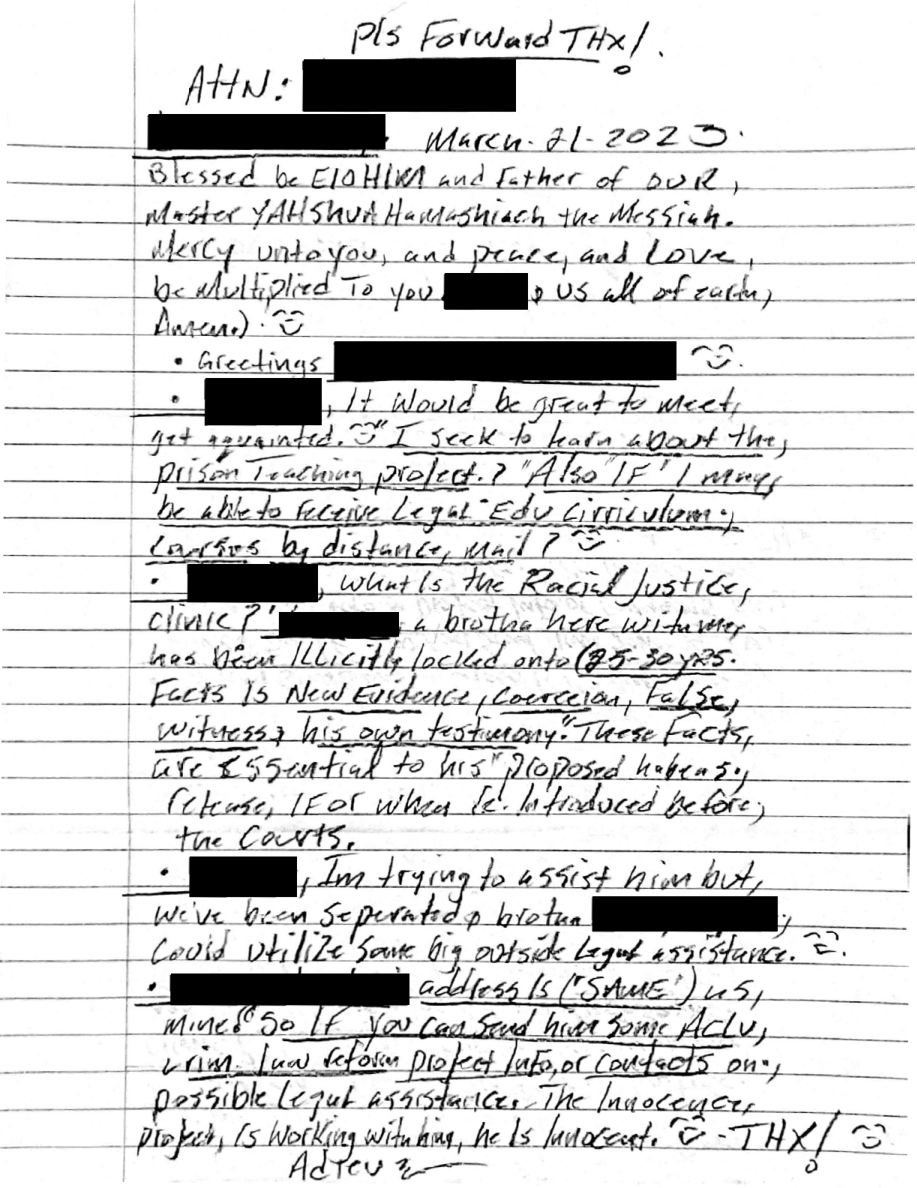 pls Forward THX!
AttN:
March-21-2023.
Blessed be ElOHIM and Father of OUR,
Master YAHShUA Hamashiach the Messiah.
Mercy unto you, and peace, and Love,
be Multiplied To you & US all of earth,
Amen.)
• Greetings
• , It would be great to meet,
get aquainted. "I seek to learn about the,
prison Teaching project.? "Also "IF" I may,
be able to receive Legal Edu Cirriculum.,
courses by distance, mail?
• , what Is the Racial Justice,
clinic? a brotha here with me,
has been Illicitly locked onto (25-30 yrs.
Facts Is New Evidence, Coercion, False,
witness, his own testimony." These Facts,
are Essential to his "proposed habeas.,
release, IF or when Introduced before,
the Courts.
• , Im trying to assist him but,
we've been Seperated, brotha
Could utilize some big outside Legal assistance.
• address Is ('SAME') as,
mine. So IF you can Send him Some ACLU,
crim. law reform project Info, or contacts on.,
possible Legal assistance. The Innocence,
project, Is working with him, he Is Innocent. - THX!
Adieu